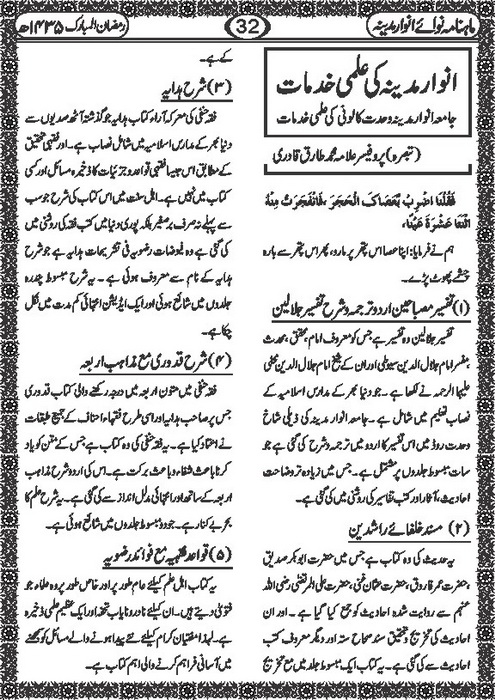 ماہنامہ نوائے انوار مدینہ
32
رمضان المبارک ۱۴۳۵ھ
انوار مدینہ کی علمی خدمات
جامعہ انوار مدینہ وحدت کالونی کی علمی خدمات
(تبصرہ) پروفیسر علامہ محمد طارق قادری
فَقُلْنَا اضْرِبْ بِعَصَاكَ الْحَجَرَ ، فَانْفَجَرَتْ مِنْهُ
اثْنَتَا عَشْرَةَ عَيْنًا۔
ہم نے فرمایا: اپنا عصا اس پتھر پر مارو، پھر اس پتھر سے بارہ
چشمے پھوٹ پڑے۔
(۱) تفسیر مصباحین اردو ترجمہ و شرح تفسیر جلالین
تفسیر جلالین وہ تفسیر ہے جس کو معروف امام، محقق، محدث
مفسر امام جلال الدین سیوطی اور ان کے شیخ امام جلال الدین محلی
علیہما الرحمہ نے لکھا ہے۔ جو دنیا بھر کے مدارس اسلامیہ کے
نصاب تعلیم میں شامل ہے۔ جامعہ انوار مدینہ کی ذیلی شاخ
وحدت روڈ میں اس تفسیر کا اردو میں ترجمہ و شرح کی گئی ہے جو
سات مبسوط جلدوں پر مشتمل ہے۔ جس میں زیادہ تر وضاحت
احادیث، آثار اور کتب تفاسیر کی روشنی میں کی گئی ہے۔
(۲) مسند خلفائے راشدین
یہ حدیث کی وہ کتاب ہے جس میں حضرت ابوبکر صدیق
، حضرت عمر فاروق، حضرت عثمان غنی، حضرت علی المرتضی رضی اللہ
عنہم سے روایت شدہ احادیث کو جمع کیا گیا ہے۔ اور ان
احادیث کی تخریج و تحقیق سند صحاح ستہ اور دیگر معروف کتب
احادیث سے کی گئی ہے۔ یہ کتاب ایک مبسوط جلد میں تخریج
کے ہے۔
(۳) شرح ہدایہ
فقہ حنفی کی معرکۃ آراء کتاب ہدایہ جو گذشتہ آٹھ صدیوں سے
دنیا بھر کے مدارس اسلامیہ میں شامل نصاب ہے۔ اور فقہی تحقیق
کے مطابق اس جیسا فقہی قواعد و جزئیات کا ذخیرہ مسائل اور کسی
کتاب میں نہیں ہے۔ اہل سنت میں اس کتاب کی شرح جو سب
سے پہلے نہ صرف برصغیر بلکہ پوری دنیا میں کتب فقہ کی روشنی میں
کی گئی ہے وہ فیوضات رضویہ فی تشریحات ہدایہ ہے جو شرح
ہدایہ کے نام سے معروف ہوئی ہے۔ یہ شرح مبسوط پندرہ
جلدوں میں شائع ہوئی اور ایک ایڈیشن انتہائی کم مدت میں نکل
چکا ہے۔
(۴) شرح قدوری مع مذاہب اربعہ
فقہ حنفی میں متون اربعہ میں درجہ رکھنے والی کتاب قدوری
جس پر صاحب ہدایہ اور اسی طرح فقہاء احناف کے جمیع طبقات
نے اعتماد کیا ہے۔ یہ فقہ حنفی کی وہ کتاب ہے جس کے متن کو یاد
کرنا باعث شفاء و باعث برکت ہے۔ اس کی اردو شرح مذاہب
اربعہ کے ساتھ اور انتہائی مدلل انداز سے کی گئی ہے۔ یہ شرح علم کا
بحر بے کنار ہے۔ جو دو مبسوط جلدوں میں شائع ہوئی ہے۔
(۵) قواعد فقہیہ مع فوائد رضویہ
یہ کتاب اہل علم کیلئے عام طور پر اور خاص طور پر وہ علماء جو
فتویٰ دیتے ہیں۔ ان کیلئے نادر و نایاب تحفہ اور ایک عظیم علمی ذخیرہ
ہے۔ لہذا مفتیان کرام کیلئے نئے پیدا ہونے والے مسائل کو سمجھنے
میں آسانی فراہم کرنے والی اہم کتاب ہے۔